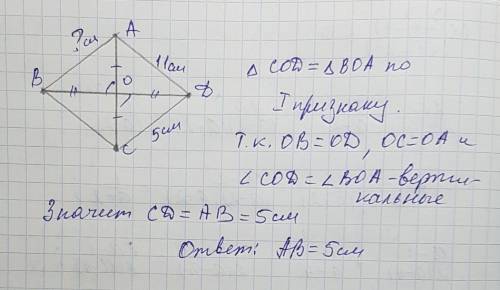 A
? см
11 см
B
O
D
5 см
C
△ COD = △ BOA по
I признаку.
Т.к. OB = OD, OC = OA и
∠ COD = ∠ BOA - верти-
кальные
Значит CD = AB = 5 см
Ответ: AB = 5 см